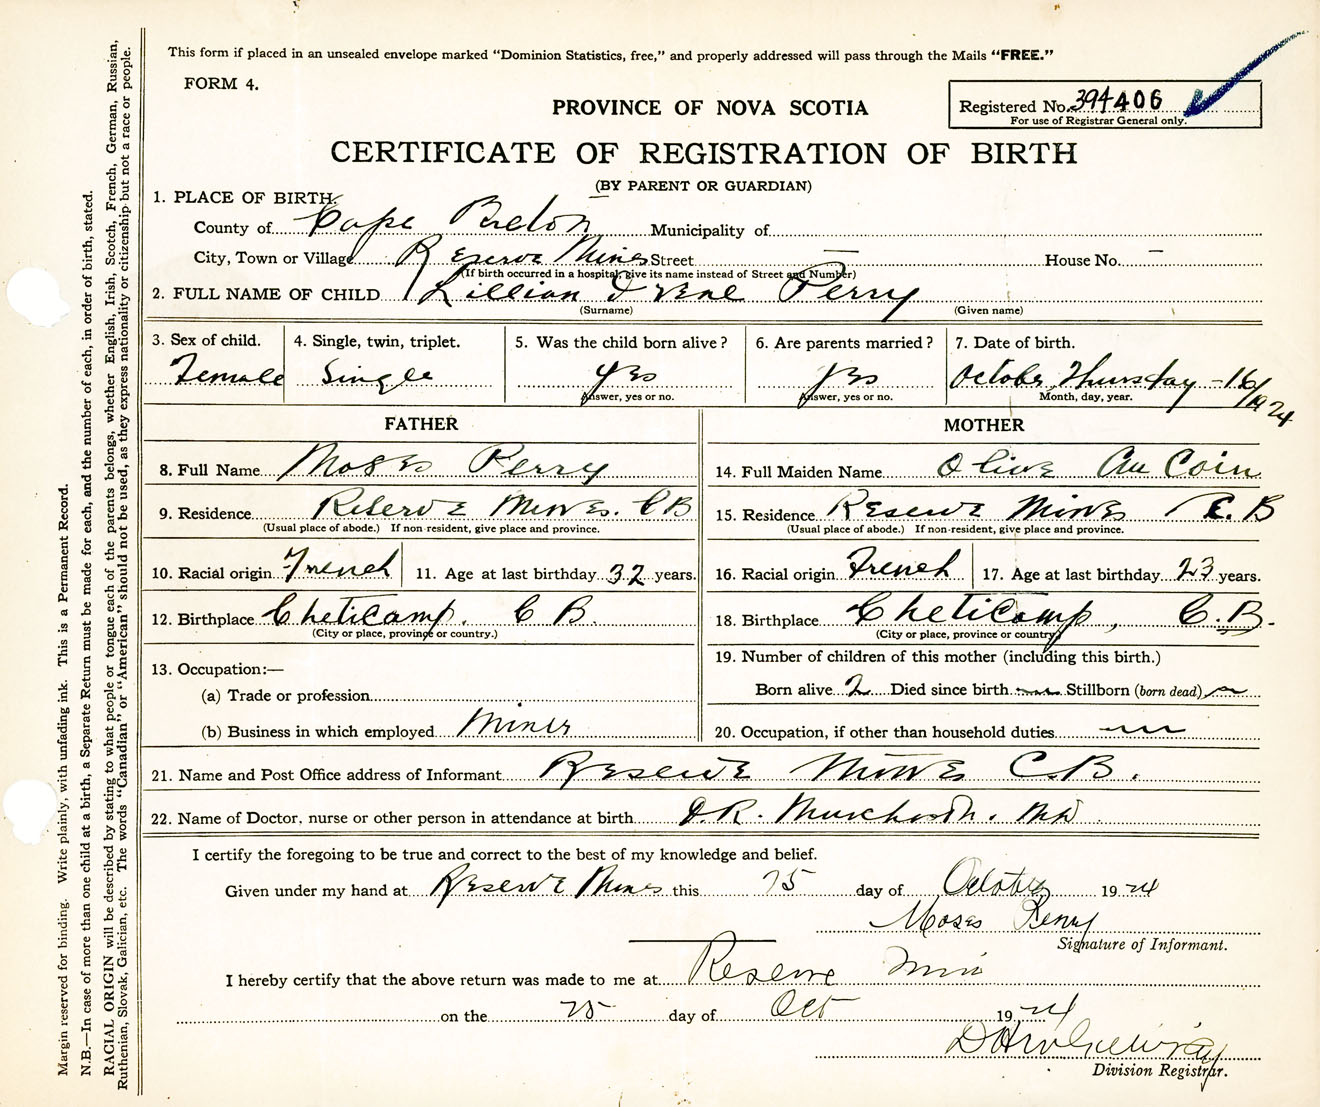 This form if placed in an unsealed envelope marked "Dominion Statistics, free," and properly addressed will pass through the Mails "FREE."
FORM 4.
PROVINCE OF NOVA SCOTIA
Registered No. 394406
For use of Registrar General only.
CERTIFICATE OF REGISTRATION OF BIRTH
(BY PARENT OR GUARDIAN)
1. PLACE OF BIRTH.
County of Cape Breton Municipality of
City, Town or Village Reserve Mines Street — House No. –
(If birth occurred in a hospital, give its name instead of Street and Number)
2. FULL NAME OF CHILD Lillian Irene Perry
(Surname) (Given name)
3. Sex of child. 4. Single, twin, triplet. 5. Was the child born alive? 6. Are parents married? 7. Date of birth.
Female Single yes yes October Thursday - 16/1924
Answer, yes or no. Answer, yes or no. Month, day, year.
FATHER MOTHER
8. Full Name Moses Perry 14. Full Maiden Name Olive Au Coin
9. Residence Reserve Mines. C B 15. Residence Reserve Mines C. B
(Usual place of abode.) If non-resident, give place and province. (Usual place of abode.) If non-resident, give place and province.
10. Racial origin French 11. Age at last birthday 32 years. 16. Racial origin French 17. Age at last birthday 23 years.
12. Birthplace Cheticamp. C B. 18. Birthplace Cheticamp, C.B.
(City or place, province or country.) (City or place, province or country)
13. Occupation:— 19. Number of children of this mother (including this birth.)
(a) Trade or profession Born alive 2 Died since birth Stillborn (born dead)
(b) Business in which employed Miner 20. Occupation, if other than household duties
21. Name and Post Office address of Informant Reserve Mines C.B.
22. Name of Doctor, nurse or other person in attendance at birth D.R.
I certify the foregoing to be true and correct to the best of my knowledge and belief.
Given under my hand at Reserve Mines this 25 day of October 1924
Moses Perry
Signature of Informant.
I hereby certify that the above return was made to me at Reserve Mines
on the 25 day of Oct 1924
Division Registrar.
Margin reserved for binding. Write plainly, with unfading ink. This is a Permanent Record.
N.B.—In case of more than one child at a birth, a Separate Return must be made for each, and the number of each, in order of birth, stated.
RACIAL ORIGIN will be described by stating to what people or tongue each of the parents belongs, whether English, Irish, Scotch, French, German, Russian,
Ruthenian, Slovak, Galician, etc. The words "Canadian" or "American" should not be used, as they express nationality or citizenship but not a race or people.